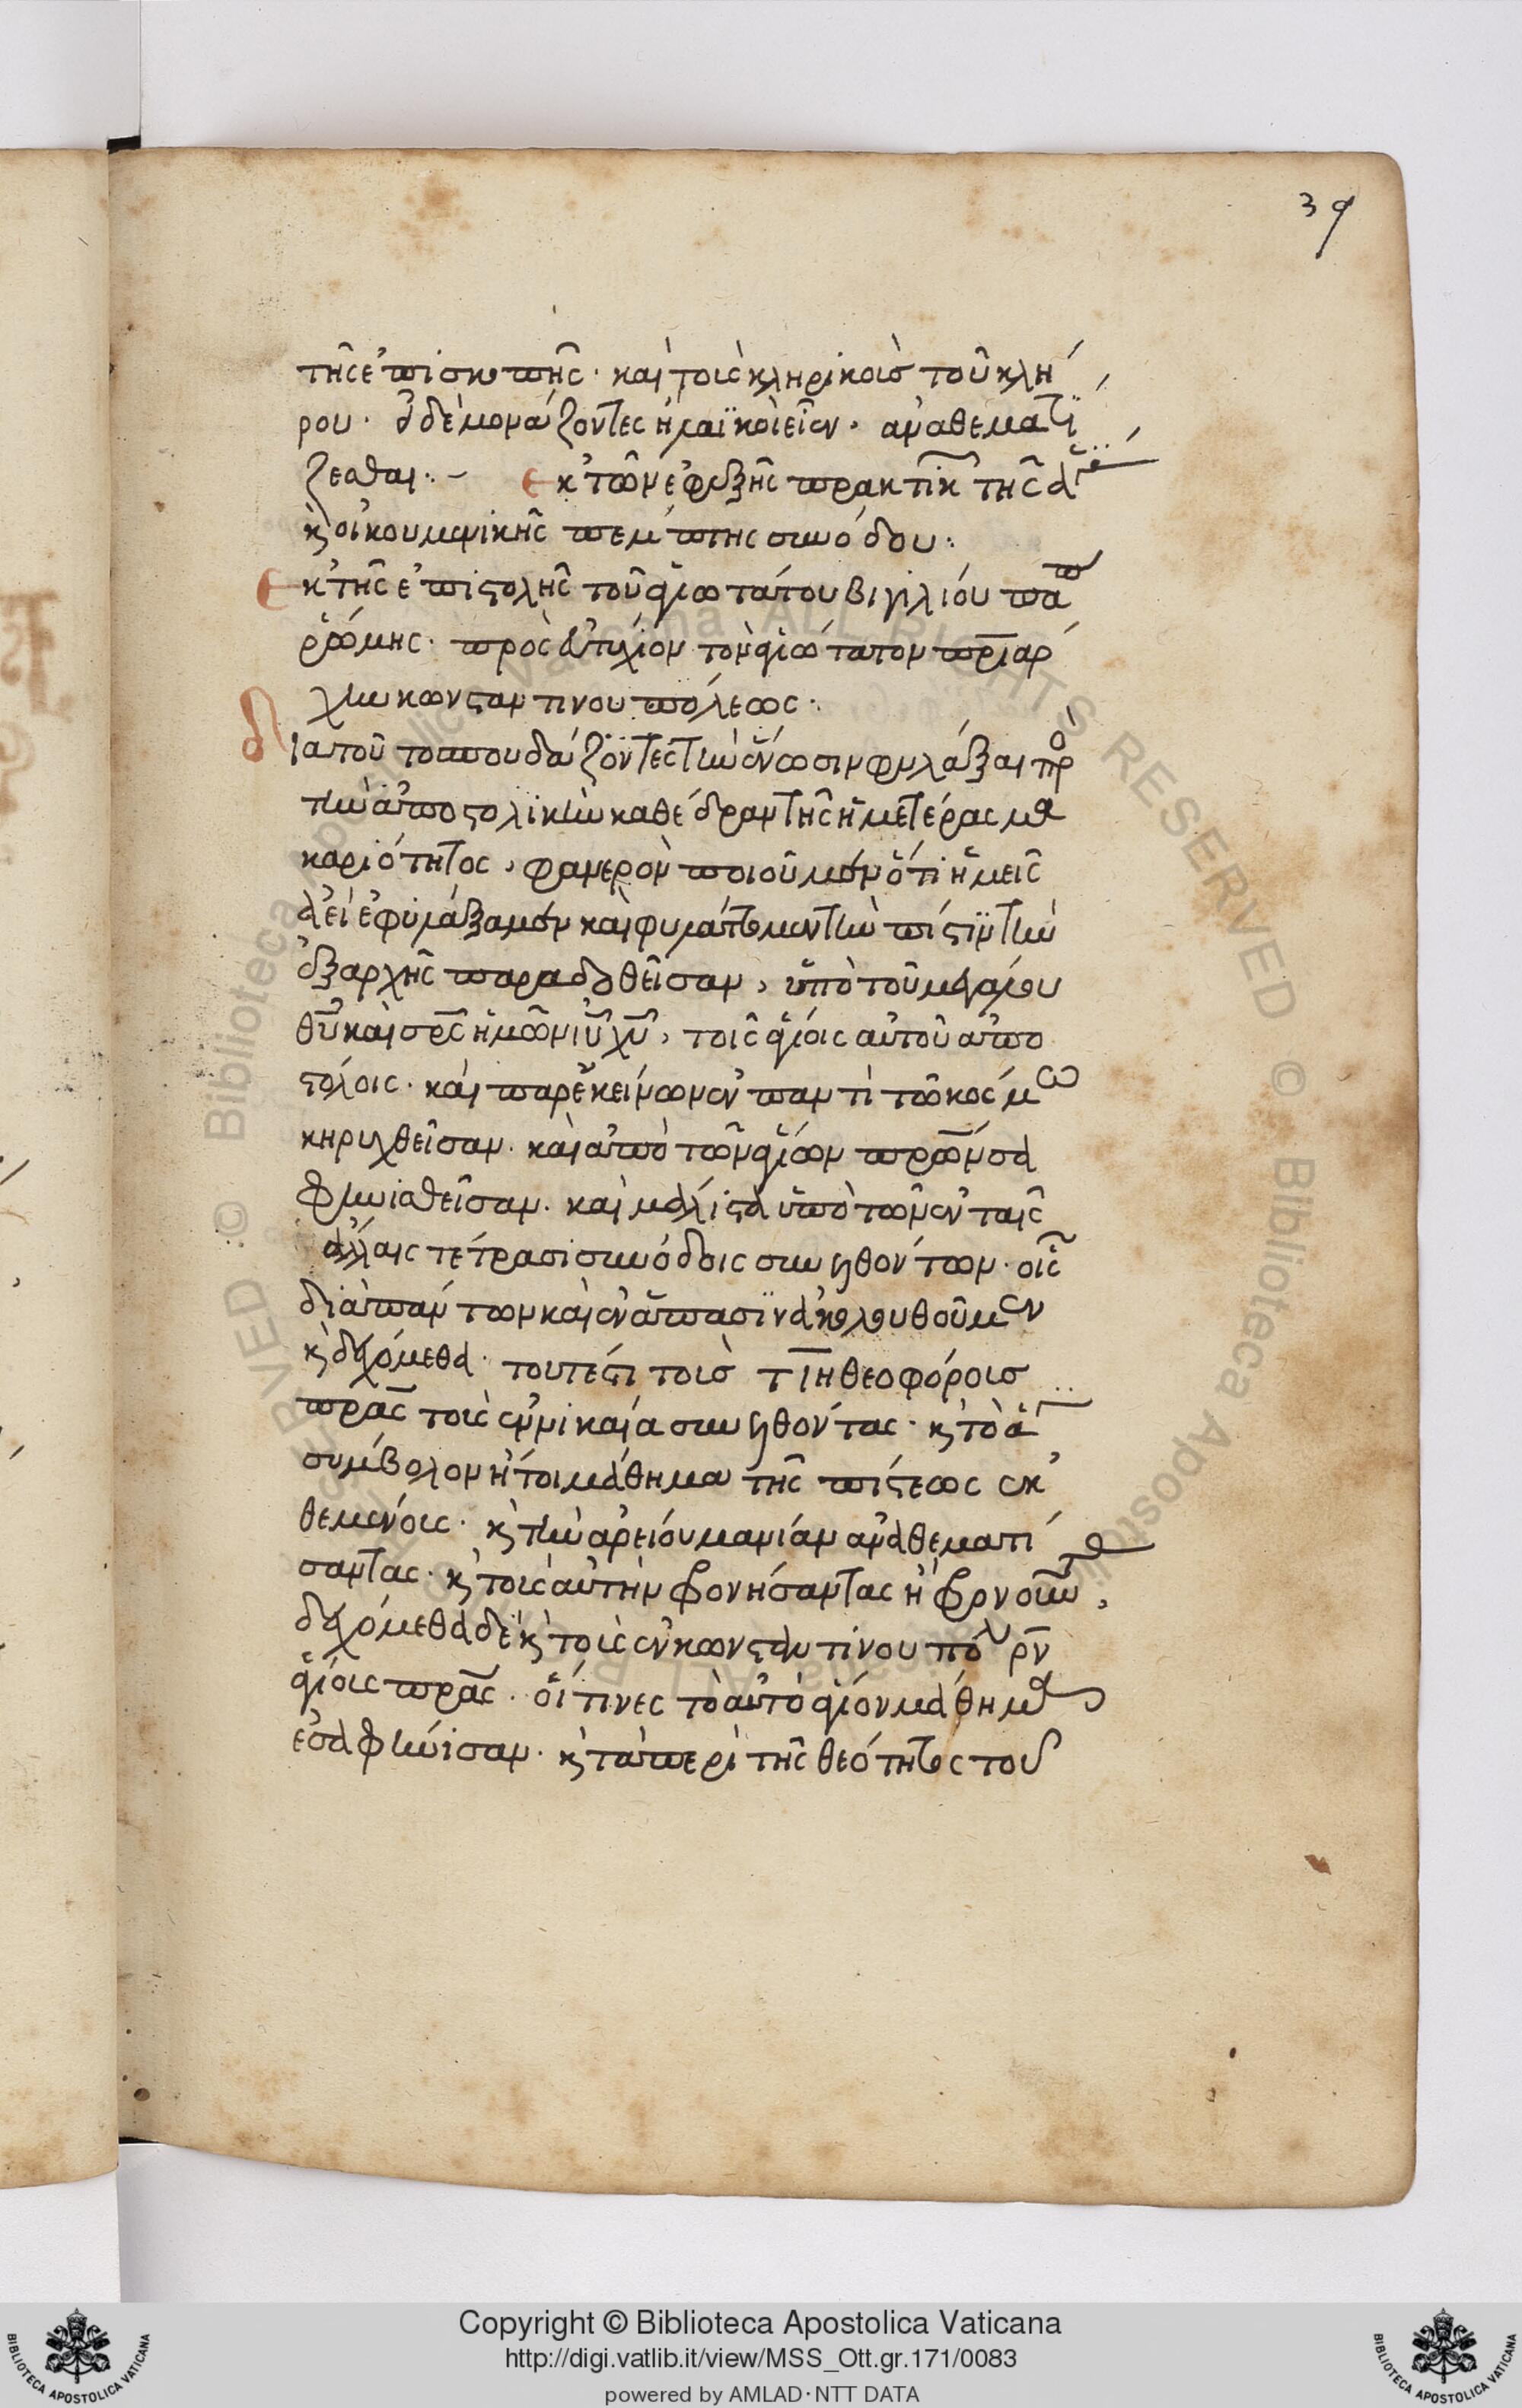 39
τῆς ἐπισκοπῆς· καὶ τοὺς κληρικοὺς τοῦ κλή
ρου· εἰ δὲ μονάζοντες ἢ λαϊκοὶ εἶεν· ἀναθεματί
ζεσθαι:~ Ἐκ τῶν ἑξῆς πρακτικ τῆς ἁγίας
κ οἰκουμενικῆς πέμπτης συνόδου:
Ἐκ τῆς ἐπιστολῆς τοῦ ἁγιωτάτου βιγιλίου πάπ
ῥώμης· πρὸς εὐτύχιον τὸν ἁγιώτατον πριάρ
χην κωνσταντινουπόλεως·
Διὰ τοῦτο σπουδάζοντες τὴν ἕνωσιν φυλάξαι πρὸ
τὴν ἀποστολικὴν καθέδραν τῆς ἡμετέρας μα
καριότητος, φανερὸν ποιοῦμεν ὅτι ἡμεῖς
ἀεὶ ἐφυλάξαμεν καὶ φυλάττομεν τὴν πίστιν τὴν
ἐξαρχῆς παραδοθεῖσαν, ὑπὸ τοῦ μεγάλου
θῦ καὶ σρς ἡμῶν ιῦ χῦ, τοῖς ἁγίοις αὐτοῦ ἀπο
στόλοις· καὶ παρ' ἐκείνων ἐν παντὶ τῷ κόσμω
κηρυχθεῖσαν· καὶ ἀπὸ τῶν ἁγίων πρων σα
φηνισθεῖσαν· καὶ μάλιστα ὑπὸ τῶν ἐν ταῖς
ἁγίαις τέτρασι συνόδοις συνελθόντων· οἷς
διὰ πάντων καὶ ἐν ἅπασιν ἀκολουθοῦμεν
κ δεχόμεθα· τουτέστι τοὺς τιη θεοφόροις
πρας τοὺς ἐν νικαία συνελθόντας· κ τὸ ἅγιον
σύμβολον ἤτοι μάθημα τῆς πίστεως ἐκ
θεμένους· κ τὴν ἀρείου μανίαν ἀναθεματί
σαντας· κ τοὺς αὐτὴν φρονήσαντας ἢ φρονοῦντας,
δεχόμεθα δὲ κ τοὺς ἐν κωνσταντίνου πόλ ρν
ἁγίους πρας· οἵτινες τὸ αὐτὸ ἅγιον μάθημα
ἐσαφήνισαν· κ τὰ περὶ τῆς θεότητος τοῦ
Copyright © Biblioteca Apostolica Vaticana
http://digi.vatlib.it/view/MSS_Ott.gr.171/0083
powered by AMLAD·NTT DATA